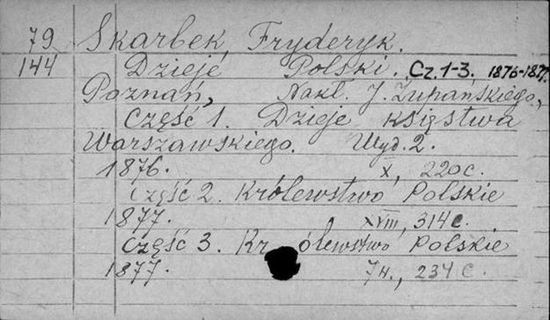 79 Skarbek, Fryderyk.
144 Dzieje Polski. Cz. 1-3. 1876-1877
Poznań, Nakł. J. Żupańskiego,
Część 1. Dzieje Księstwa
Warszawskiego. Wyd. 2.
1876. X, 220 c.
Część 2. Królewstwo Polskie
1877. XVIII, 314 c.
Część 3. Królewstwo Polskie
1877. 7 н., 234 c.